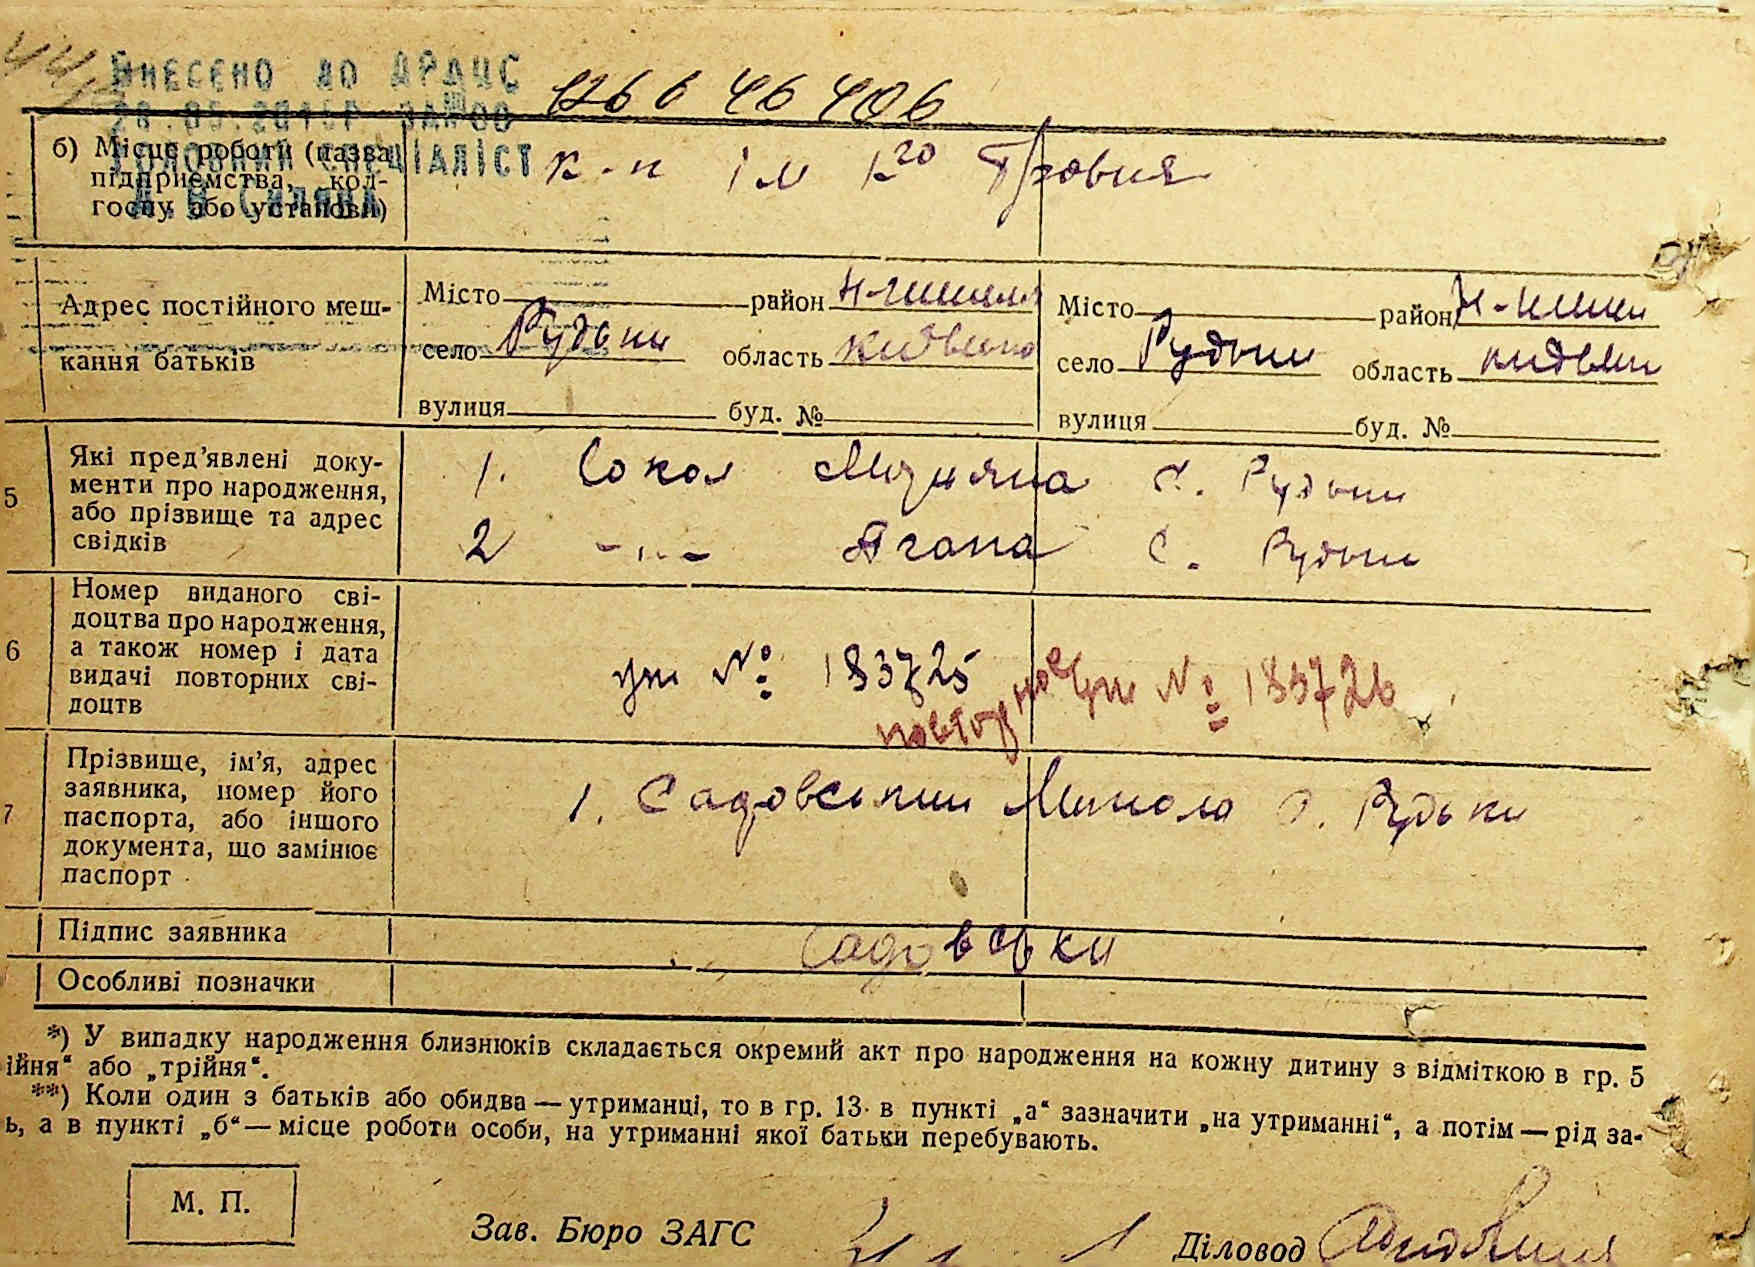 ВНЕСЕНО ДО ДРАЦС
ГОЛОВНИЙ СПЕЦІАЛІСТ
б) Місце роботи (назва підприємства, кол-
госпу або установи)
к-п ім 1го Травня
Адрес постійного меш-
кання батьків
Місто район
село Рудьки область
вулиця буд. №
Місто район
село Рудьки область
вулиця буд. №
5
Які пред’явлені доку-
менти про народження,
або прізвище та адрес
свідків
1. Сокол с. Рудьки
2 -"- Агапа с. Рудьки
6
Номер виданого сві-
доцтва про народження,
а також номер і дата
видачі повторних сві-
доцтв
№ 183725
повторное № 183726
7
Прізвище, ім’я, адрес
заявника, номер його
паспорта, або іншого
документа, що замінює
паспорт
1. Садовський Микола с. Рудьки
Підпис заявника
Садовськи
Особливі позначки
*) У випадку народження близнюків складається окремий акт про народження на кожну дитину з відміткою в гр. 5
ійня“ або „трійня“.
**) Коли один з батьків або обидва — утриманці, то в гр. 13 в пункті „а“ зазначити „на утриманні“, а потім — рід за-
ь, а в пункті „б“ — місце роботи особи, на утриманні якої батьки перебувають.
М. П.
Зав. Бюро ЗАГС
Діловод